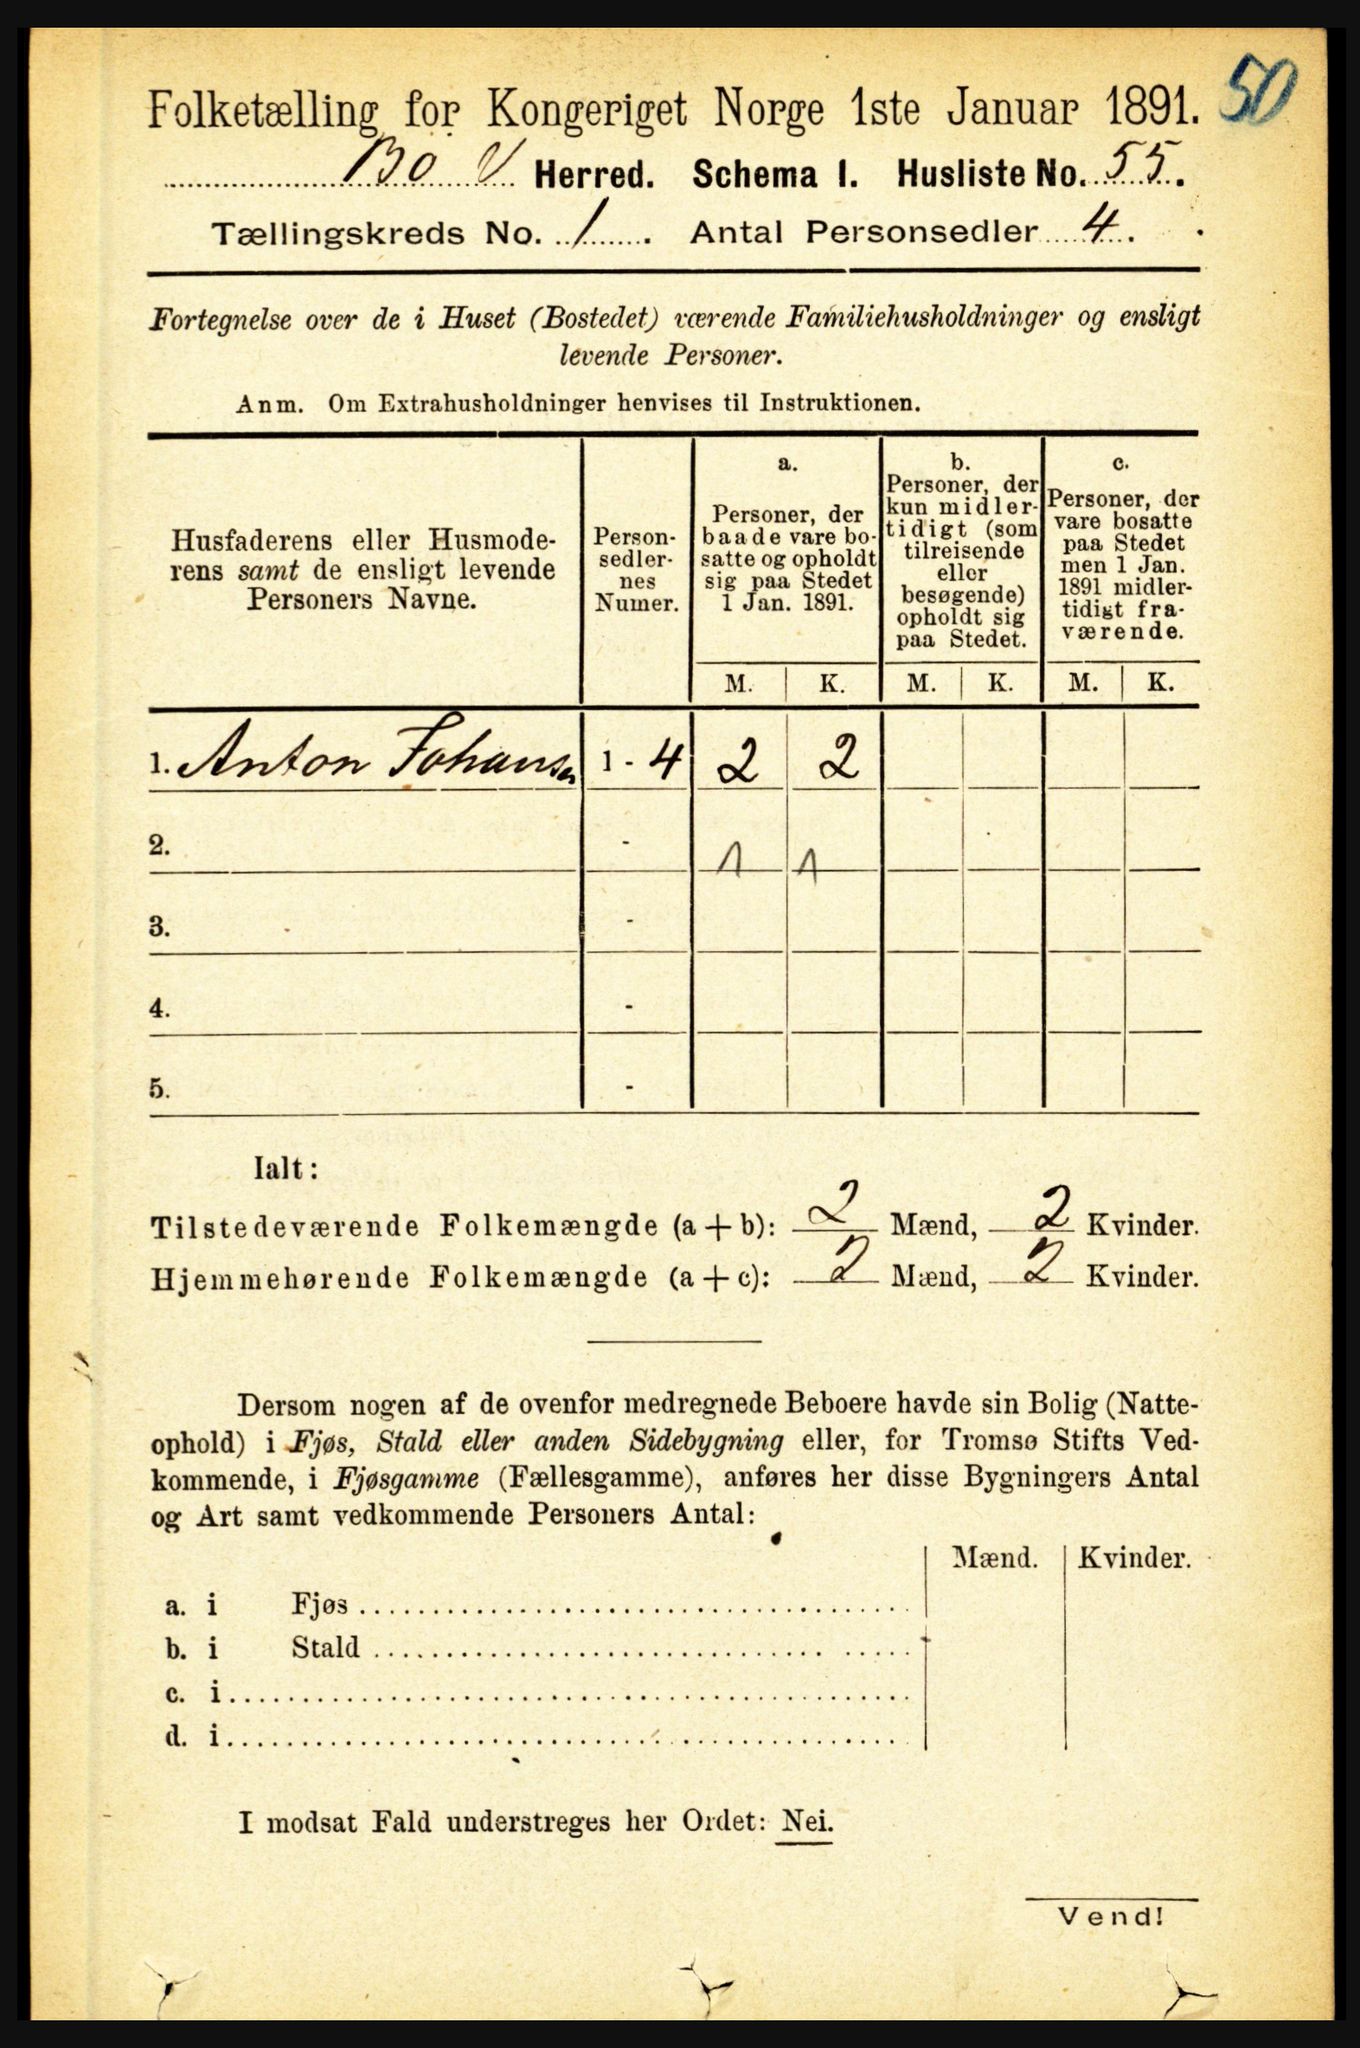 50
Folketælling for Kongeriget Norge 1ste Januar 1891.
Bø V Herred. Schema I. Husliste No. 55.
Tællingskreds No. 1. Antal Personsedler 4.
Fortegnelse over de i Huset (Bostedet) værende Familiehusholdninger og ensligt
levende Personer.
Anm. Om Extrahusholdninger henvises til Instruktionen.
Husfaderens eller Husmode-
rens samt de ensligt levende
Personers Navne.
Person-
sedler-
nes
Numer.
a.
Personer, der
baade vare bo-
satte og opholdt
sig paa Stedet
1 Jan. 1891.
b.
Personer, der
kun midler-
tidigt (som
tilreisende
eller
besøgende)
opholdt sig
paa Stedet.
c.
Personer, der
vare bosatte
paa Stedet
men 1 Jan.
1891 midler-
tidigt fra-
værende.
M. K. M. K. M. K.
1. Anton Johansen 1 - 4 2 2
2. - 1 1
3. -
4. -
5. -
Ialt:
Tilstedeværende Folkemængde (a + b): 2 Mænd, 2 Kvinder.
Hjemmehørende Folkemængde (a + c): 2 Mænd, 2 Kvinder.
Dersom nogen af de ovenfor medregnede Beboere havde sin Bolig (Natte-
ophold) i Fjøs, Stald eller anden Sidebygning eller, for Tromsø Stifts Ved-
kommende, i Fjøsgamme (Fællesgamme), anføres her disse Bygningers Antal
og Art samt vedkommende Personers Antal:
Mænd. Kvinder.
a. i Fjøs
b. i Stald
c. i
d. i
I modsat Fald understreges her Ordet: Nei.
Vend!